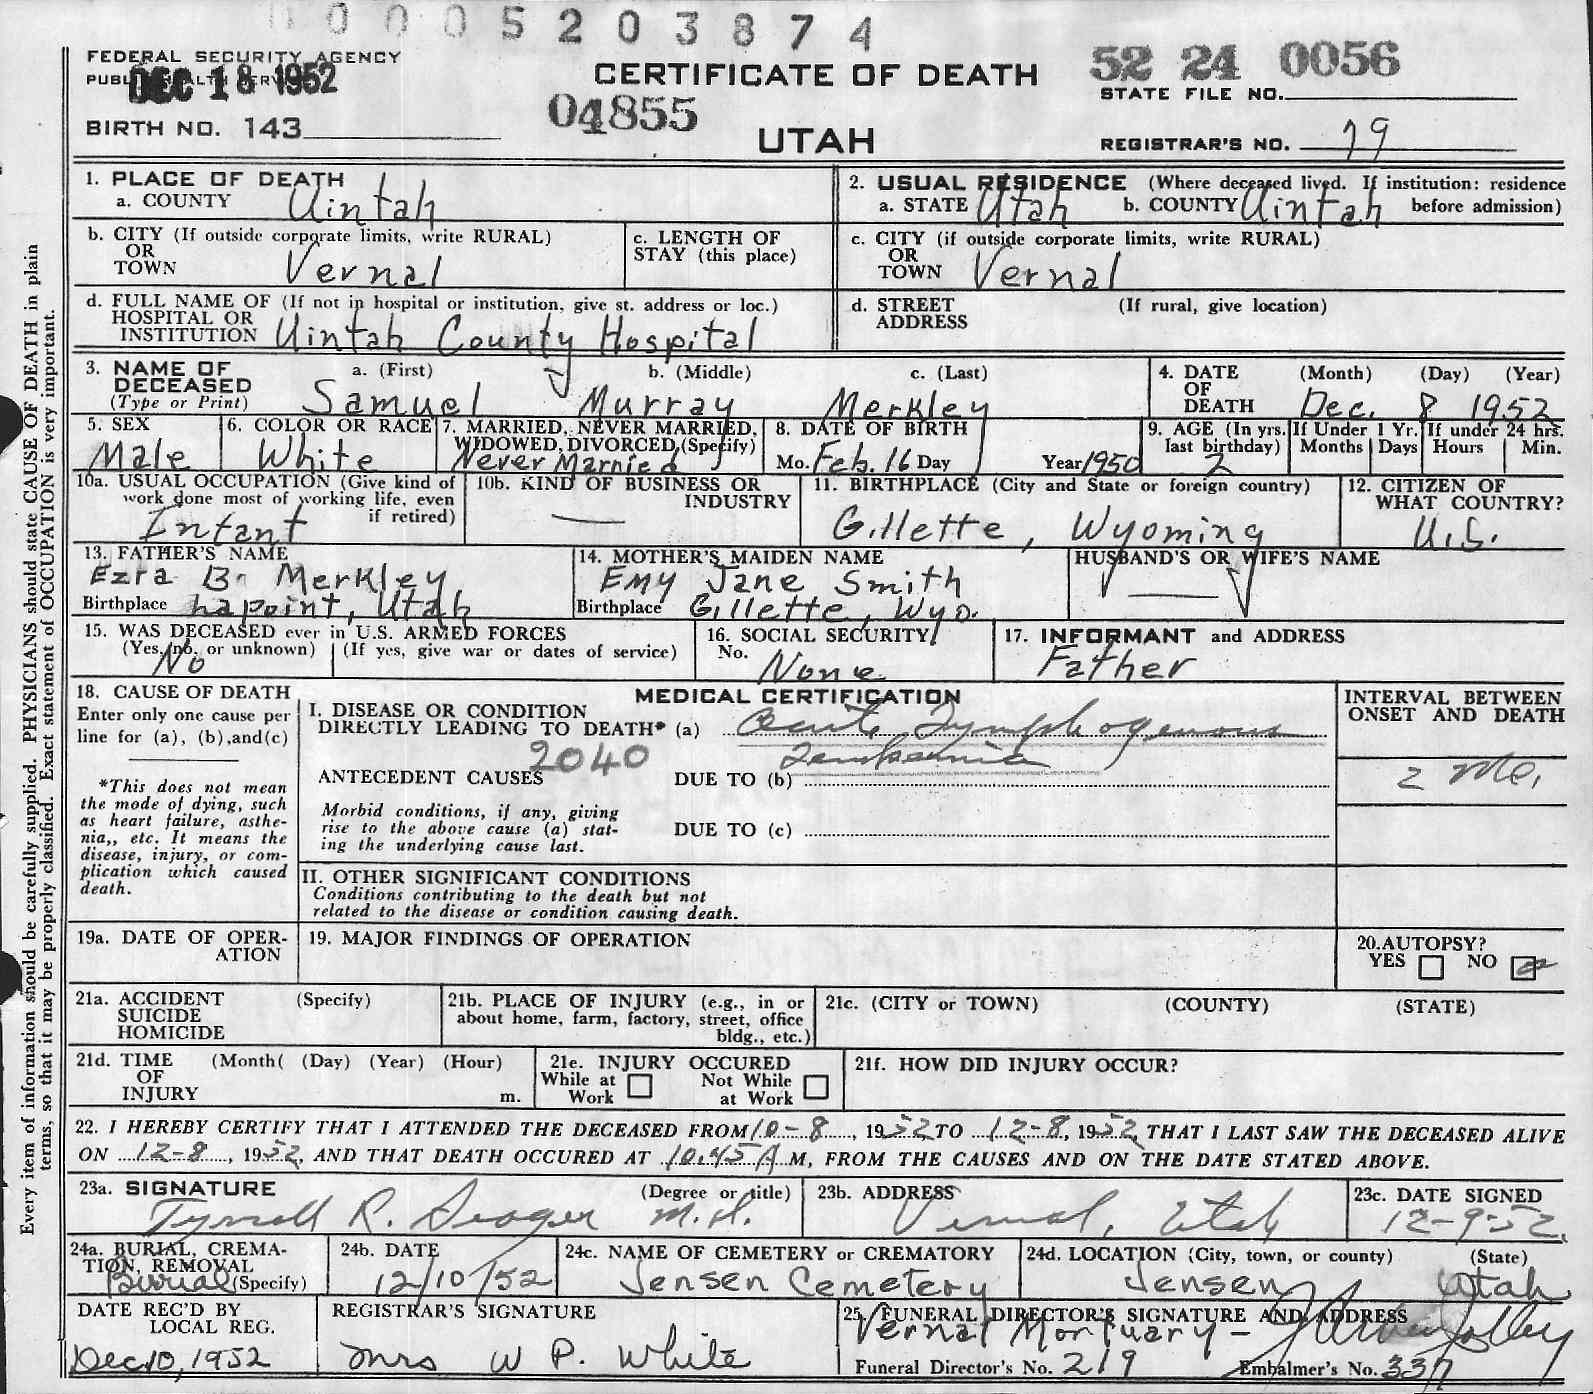 0005203874
FEDERAL SECURITY AGENCY
PUBLIC HEALTH SERVICE
DEC 18 1952
CERTIFICATE OF DEATH
UTAH
52 24 0056
STATE FILE NO.
04855
BIRTH NO. 143
REGISTRAR'S NO. 79
1. PLACE OF DEATH
a. COUNTY Uintah
2. USUAL RESIDENCE (Where deceased lived. If institution: residence before admission)
a. STATE Utah b. COUNTY Uintah
b. CITY (If outside corporate limits, write RURAL)
OR
TOWN Vernal
c. LENGTH OF
STAY (this place)
c. CITY (if outside corporate limits, write RURAL)
OR
TOWN Vernal
d. FULL NAME OF (If not in hospital or institution, give st. address or loc.)
HOSPITAL OR
INSTITUTION Uintah County Hospital
d. STREET (If rural, give location)
ADDRESS
3. NAME OF
DECEASED
(Type or Print)
a. (First) b. (Middle) c. (Last)
Samuel Murray Merkley
4. DATE (Month) (Day) (Year)
OF
DEATH Dec. 8 1952
5. SEX
Male
6. COLOR OR RACE
White
7. MARRIED, NEVER MARRIED,
WIDOWED, DIVORCED (Specify)
Never Married
8. DATE OF BIRTH
Mo. Feb. 16 Day Year 1950
9. AGE (In yrs. last birthday) 2
If Under 1 Yr. Months Days
If under 24 hrs. Hours Min.
10a. USUAL OCCUPATION (Give kind of
work done most of working life, even
if retired)
Infant
10b. KIND OF BUSINESS OR
INDUSTRY
—
11. BIRTHPLACE (City and State or foreign country)
Gillette, Wyoming
12. CITIZEN OF
WHAT COUNTRY?
U.S.
13. FATHER'S NAME
Ezra B. Merkley
Birthplace Lapoint, Utah
14. MOTHER'S MAIDEN NAME
Emy Jane Smith
Birthplace Gillette, Wyo.
HUSBAND'S OR WIFE'S NAME
—
15. WAS DECEASED ever in U.S. ARMED FORCES
(Yes, no, or unknown) (If yes, give war or dates of service)
No
16. SOCIAL SECURITY
No. None
17. INFORMANT and ADDRESS
Father
18. CAUSE OF DEATH
Enter only one cause per
line for (a), (b), and (c)
*This does not mean
the mode of dying, such
as heart failure, asthe-
nia,, etc. It means the
disease, injury, or com-
plication which caused
death.
MEDICAL CERTIFICATION
I. DISEASE OR CONDITION
DIRECTLY LEADING TO DEATH* (a) Acute Lymphogenous
Leukemia
2040
ANTECEDENT CAUSES DUE TO (b)
Morbid conditions, if any, giving
rise to the above cause (a) stat-
ing the underlying cause last.
DUE TO (c)
INTERVAL BETWEEN
ONSET AND DEATH
2 Mo.
II. OTHER SIGNIFICANT CONDITIONS
Conditions contributing to the death but not
related to the disease or condition causing death.
19a. DATE OF OPER-
ATION
19. MAJOR FINDINGS OF OPERATION
20. AUTOPSY?
YES NO
21a. ACCIDENT (Specify)
SUICIDE
HOMICIDE
21b. PLACE OF INJURY (e.g., in or
about home, farm, factory, street, office
bldg., etc.)
21c. (CITY or TOWN) (COUNTY) (STATE)
21d. TIME (Month( (Day) (Year) (Hour)
OF
INJURY m.
21e. INJURY OCCURED
While at Work Not While at Work
21f. HOW DID INJURY OCCUR?
22. I HEREBY CERTIFY THAT I ATTENDED THE DECEASED FROM 10-8, 1952 TO 12-8, 1952, THAT I LAST SAW THE DECEASED ALIVE
ON 12-8, 1952, AND THAT DEATH OCCURED AT 10:45 A M, FROM THE CAUSES AND ON THE DATE STATED ABOVE.
23a. SIGNATURE (Degree or title)
Tyrrell R. Seager M.D.
23b. ADDRESS
Vernal, Utah
23c. DATE SIGNED
12-9-52
24a. BURIAL, CREMA-
TION, REMOVAL
Burial (Specify)
24b. DATE
12/10/52
24c. NAME OF CEMETERY or CREMATORY
Jensen Cemetery
24d. LOCATION (City, town, or county) (State)
Jensen Utah
DATE REC'D BY
LOCAL REG.
Dec 10, 1952
REGISTRAR'S SIGNATURE
Mrs W P. White
25. FUNERAL DIRECTOR'S SIGNATURE AND ADDRESS
Vernal Mortuary -
Funeral Director's No. 219 Embalmer's No. 337
Every item of information should be carefully supplied. PHYSICIANS should state CAUSE OF DEATH in plain
terms, so that it may be properly classified. Exact statement of OCCUPATION is very important.